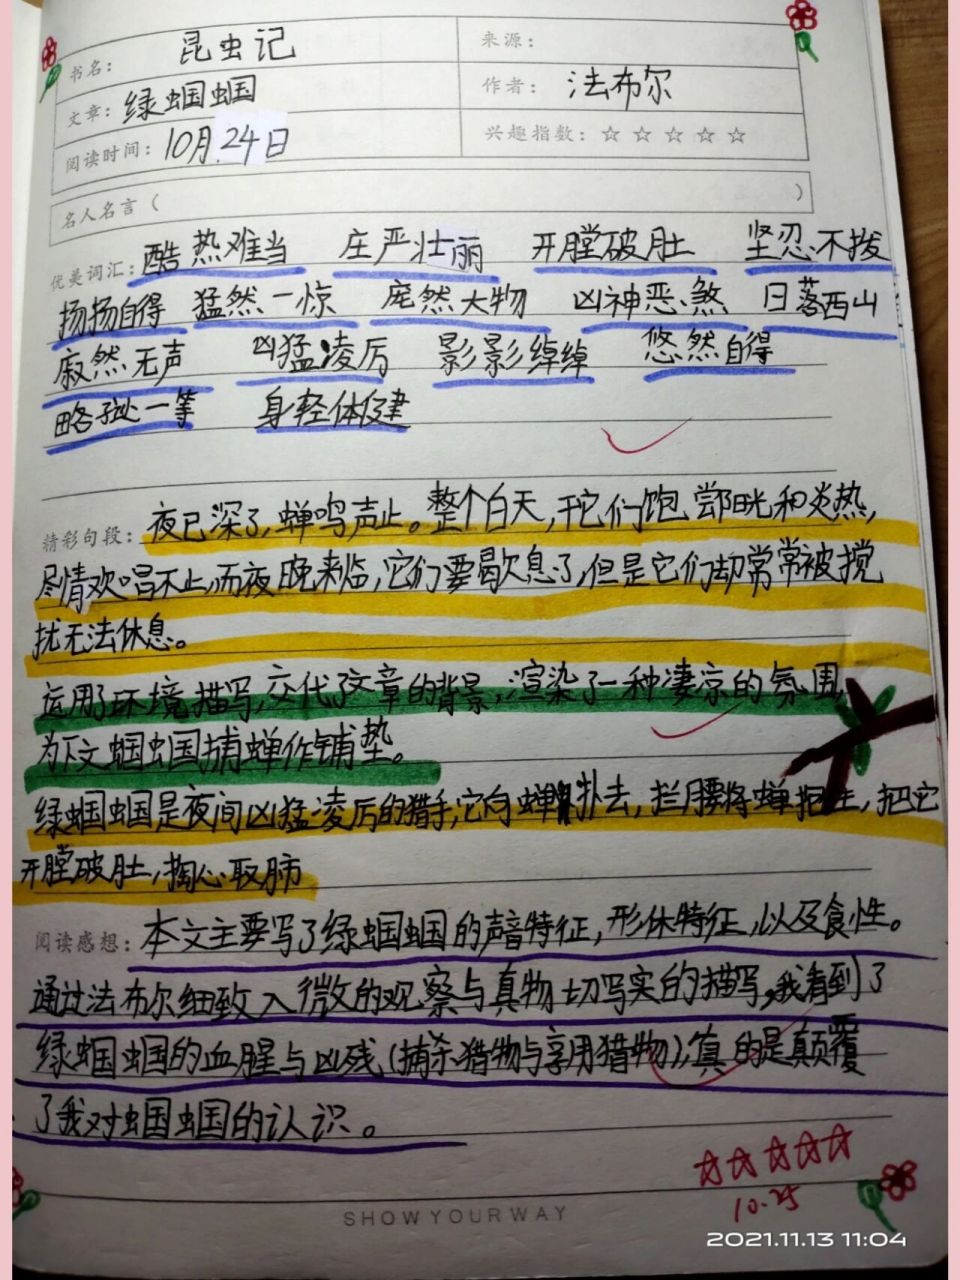 书名: 昆虫记
来源:
文章: 绿蝈蝈
作者: 法布尔
阅读时间: 10月24日
兴趣指数: ☆ ☆ ☆ ☆ ☆
名人名言 ( )
优美词汇: 酷热难当 庄严壮丽 开膛破肚 坚忍不拔
扬扬自得 猛然一惊 庞然大物 凶神恶煞 日落西山
寂然无声 凶猛凌厉 影影绰绰 悠然自得
略处一等 身轻体健
精彩句段: 夜已深了,蝉鸣声止。整个白天,于它们饱尝阳光和炎热,
尽情欢唱不止,而夜晚来临,它们要歇息了,但是它们却常常被搅
扰无法休息。
运用了环境描写,交代了文章的背景,渲染了一种凄凉的氛围,
为下文蝈蝈捕蝉作铺垫。
绿蝈蝈是夜间凶猛凌厉的猎手,它向蝉扑去,拦腰将蝉抱住,把它
开膛破肚,掏心取肺
阅读感想: 本文主要写了绿蝈蝈的声音特征,形体特征,以及食性。
通过法布尔细致入微的观察与真物切写实的描写,我看到了
绿蝈蝈的血腥与凶残(捕杀猎物与享用猎物),真的是颠覆
了我对蝈蝈的认识。
☆☆☆☆☆
10.25
SHOW YOUR WAY
2021.11.13 11:04